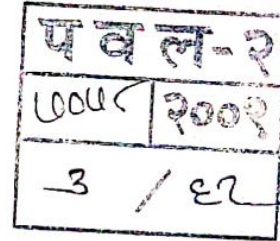 पवल-२
७०५८ २००९
3 / ६२